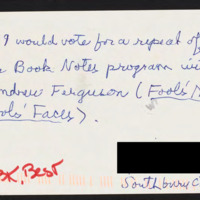 I would vote for a repeat of
Book Notes program wi
ndrew Ferguson (Fools'
ols' Faces).
Best
Southbury C